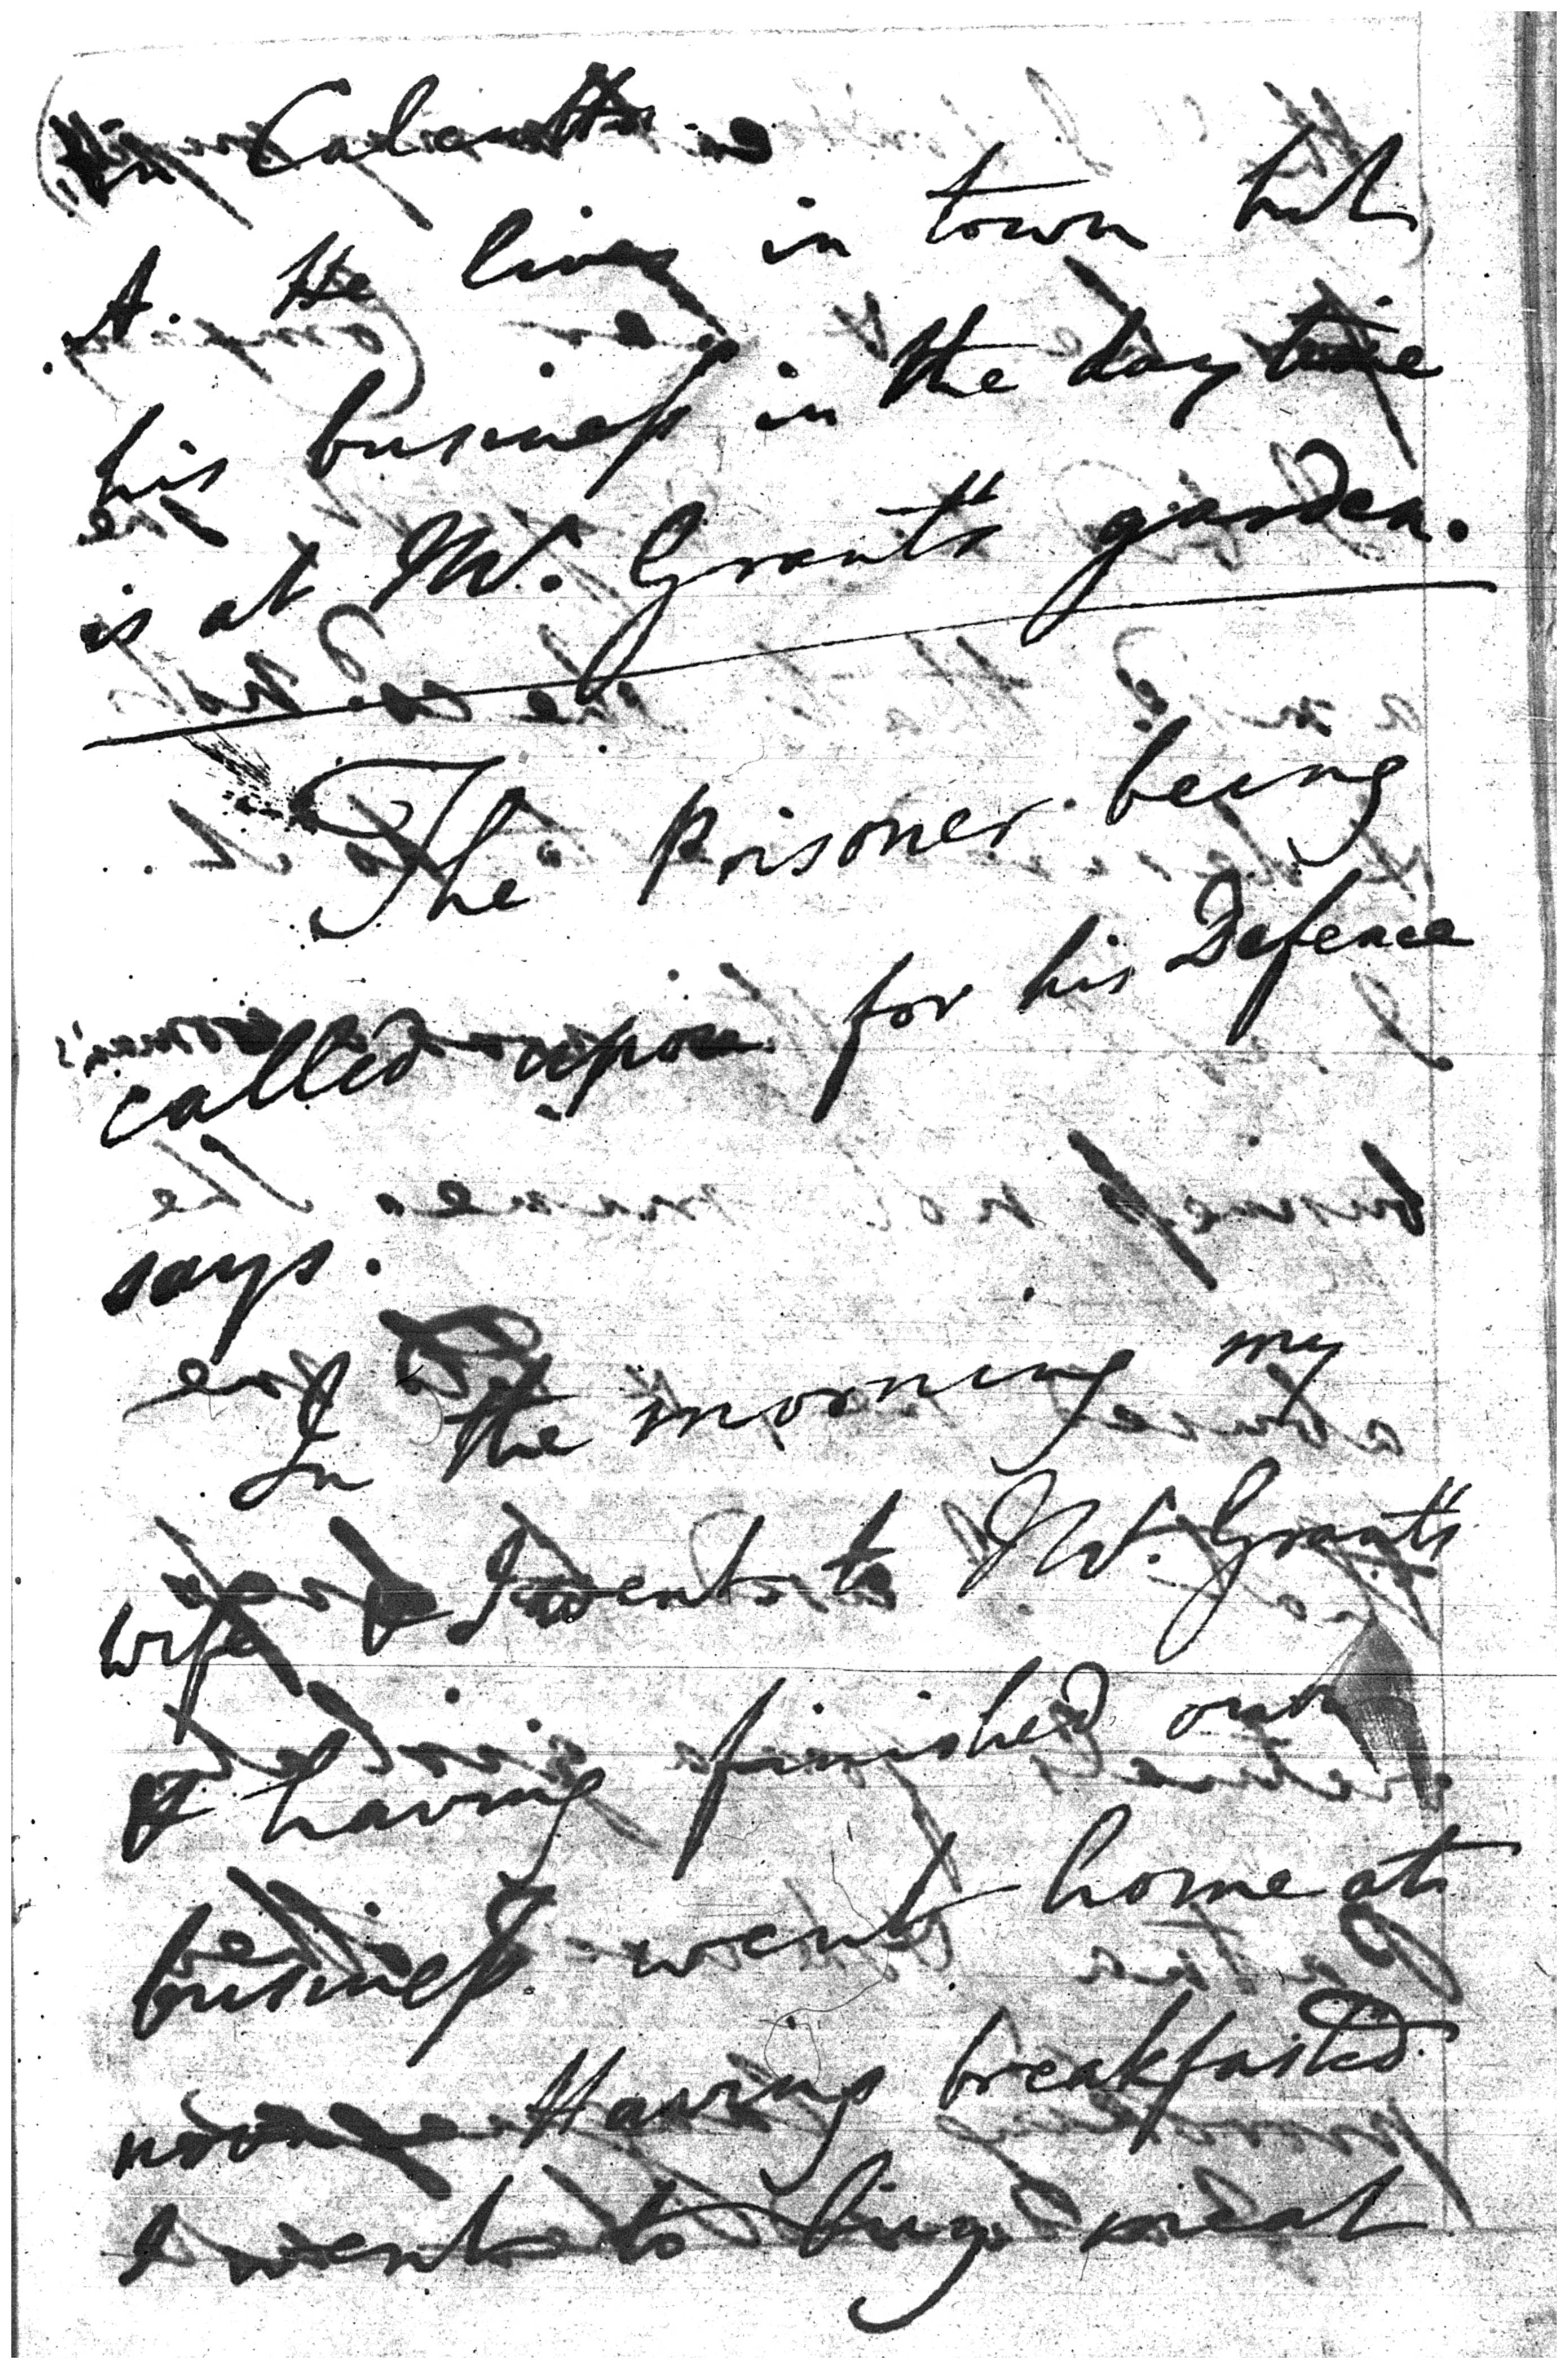 in Calcutta
A. He lives in town but
his business in the day time
is at Mr. Grant's garden.
The Prisoner being
called upon for his Defence
says.
In the morning my
wife & I went to Mr. Grant's
& having finished our
business went home at
noon Having breakfasted
I went to buy meat